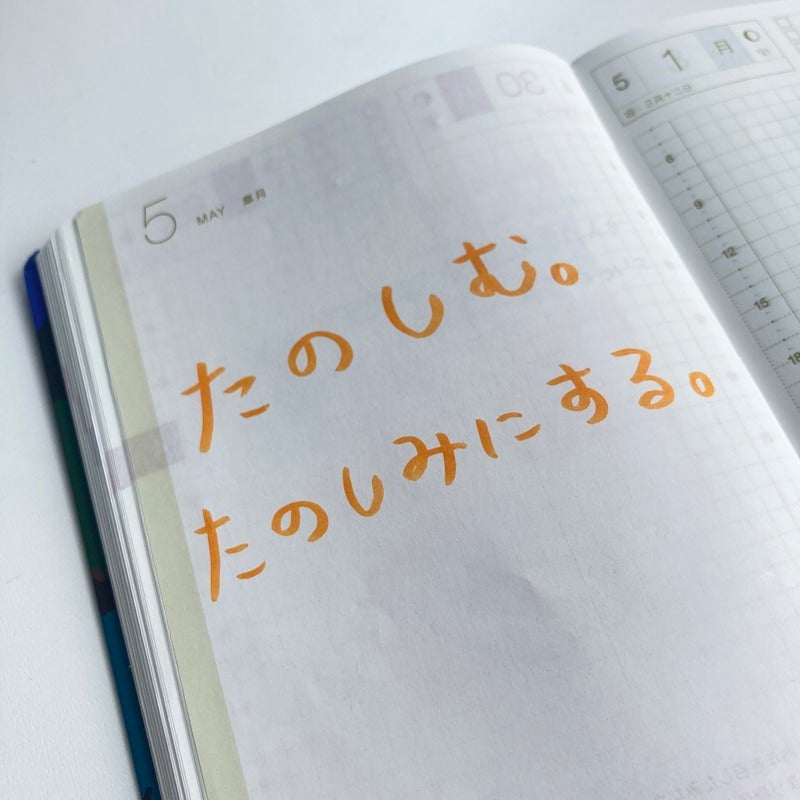 5 MAY 皐月
たのしむ。
たのしみにする。
30
5 1 月
三月十二日
6
9
12
15
18